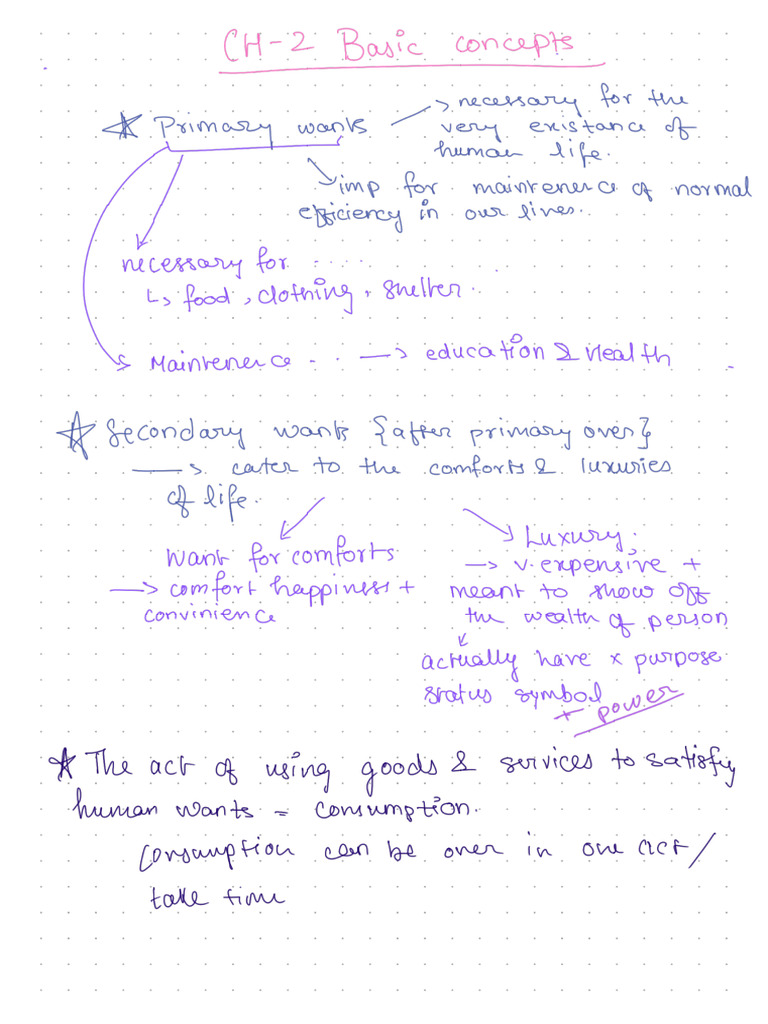 CH-2 Basic concepts
★ Primary wants → necessary for the
very existance of
human life.
→ imp for maintenence of normal
efficiency in our lives.
necessary for .....
↳ food, clothing, shelter.
Maintenence .. → education & Health
★ Secondary wants {after primary over}
→ cater to the comforts & luxuries
of life.
Want for comforts
→ comfort happiness +
convinience
Luxury;
→ v. expensive +
meant to show off
the wealth of person
actually have x purpose
status symbol
+ power
★ The act of using goods & services to satisfiy
human wants = consumption.
Consumption can be over in one act /
take time